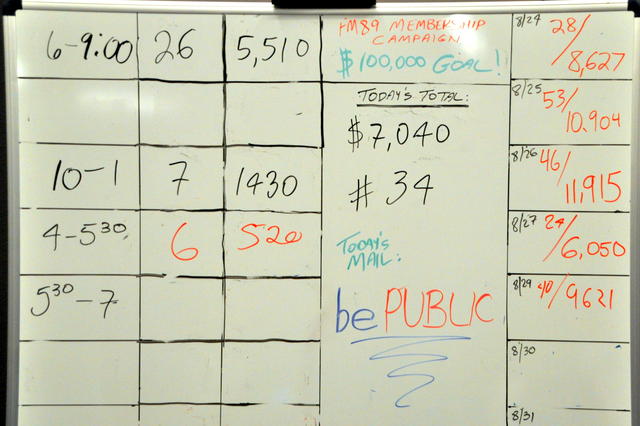 6-9:00 26 5,510
10-1 7 1430
4-5³⁰ 6 520
5³⁰-7
FM89 MEMBERSHIP
CAMPAIGN
$100,000 GOAL!
TODAY'S TOTAL:
$7,040
# 34
TODAY'S
MAIL:
be PUBLIC
8/24 28/
8,627
8/25 53/
10,904
8/26 46/
11,915
8/27 24/
6,050
8/29 40/9621
8/30
8/31